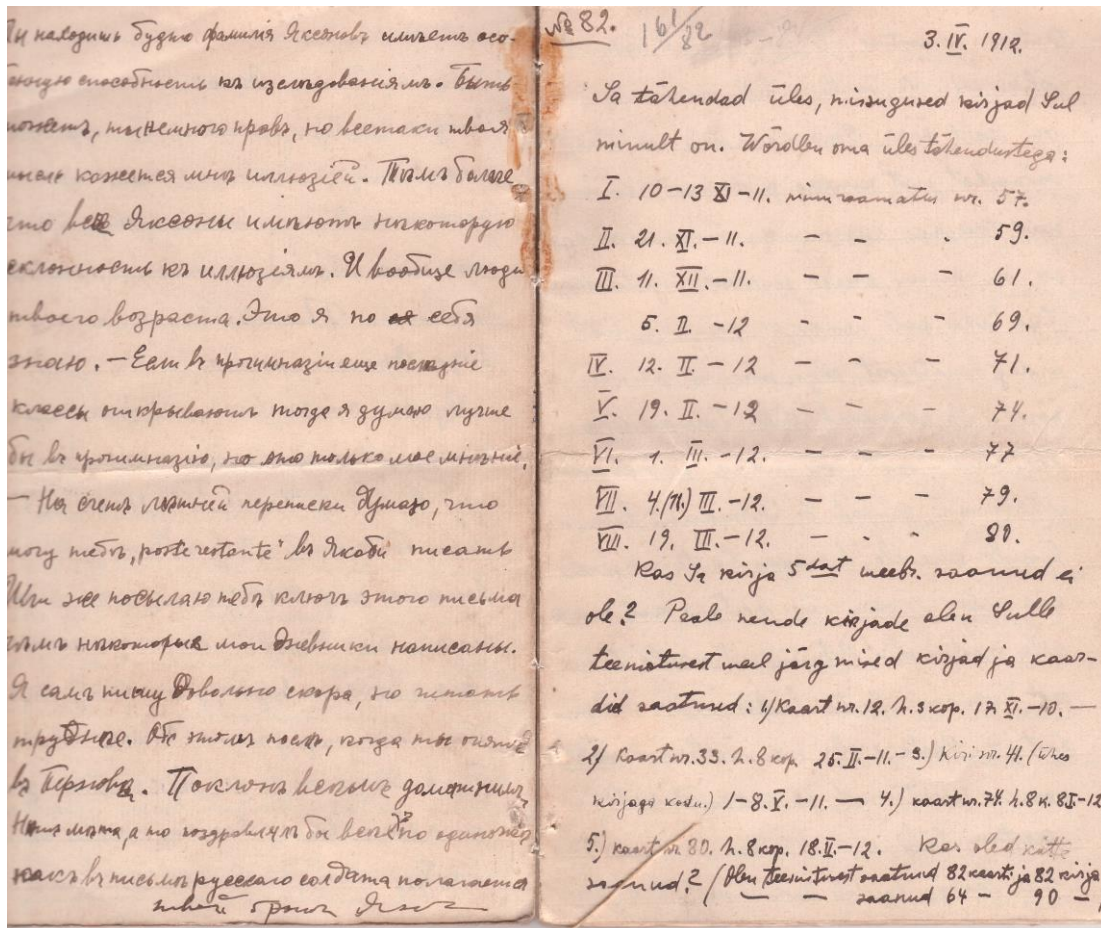 находишь будто фамилія Яксоновъ имѣетъ осо-
способность къ изслѣдованіямъ. Быть
можетъ, ты немного правъ, но всетаки твоя
мысль кажется мнѣ иллюзіей. Тѣмъ больше
что все Яксоны имѣютъ нѣкоторую
склонность къ иллюзіямъ. И вообще люди
твоего возраста. Это я по себя
знаю. — Если въ прогимназіи еще послѣдніе
классы открываютъ тогда я думаю лучше
бы въ прогимназію, но это только мое мнѣніе.
— На счетъ лѣтней переписки думаю, что
могу тебѣ „poste restante" въ Якоби писать
же посылаю тебѣ ключъ этого письма
чѣмъ нѣкоторые мои дневники написаны.
Я самъ пишу довольно скоро, но читать
труднѣе. Объ этомъ послѣ, когда ты опять
въ Перновѣ. Поклонъ всѣмъ домашнимъ
мѣста, а то поздравлялъ бы всѣхъ по одиночкѣ
какъ въ письмѣ русскаго солдата полагается
твой братъ
№ 82. 161/82
3. IV. 1912.
Sa tähendad üles, missugused kirjad Sul
minult on. Wõrdlen oma üles tähendustega:
I. 10-13 XI-11. minu raamatus nr. 57.
II. 21. XI.-11. — — - 59.
III. 11. XII.-11. — — — 61.
5. II. -12 - - - 69.
IV. 12. II - 12 — — — 71.
V. 19. II. - 12 — — — 74.
VI. 1. III. -12. — — — 77
VII. 4.(11.) III. -12. — — — 79.
VIII. 19. III. -12. — - - 80.
Kas Sa kirja 5 dat weebr. saanud ei
ole? Peale nende kirjade olen Sulle
teenistusest weel järgmised kirjad ja kaar-
did saatnud: 1) Kaart nr. 12. h. 3 kop. 17. XI. -10. —
2) Kaart nr. 33. h. 8 kop. 25. II. -11. - 3.) Kiri nr. 41. (ühes
kirjaga kodu.) 1-8. V. -11. — 4.) kaart nr. 74. h. 8 k. 8 I -12
5.) kaart nr 80. h. 8 kop. 18. II. -12. Kas oled kätte
saanud? (Olen teenistusest saatnud 82 kaarti ja 82 kirja
— — saanud 64 — 90 —